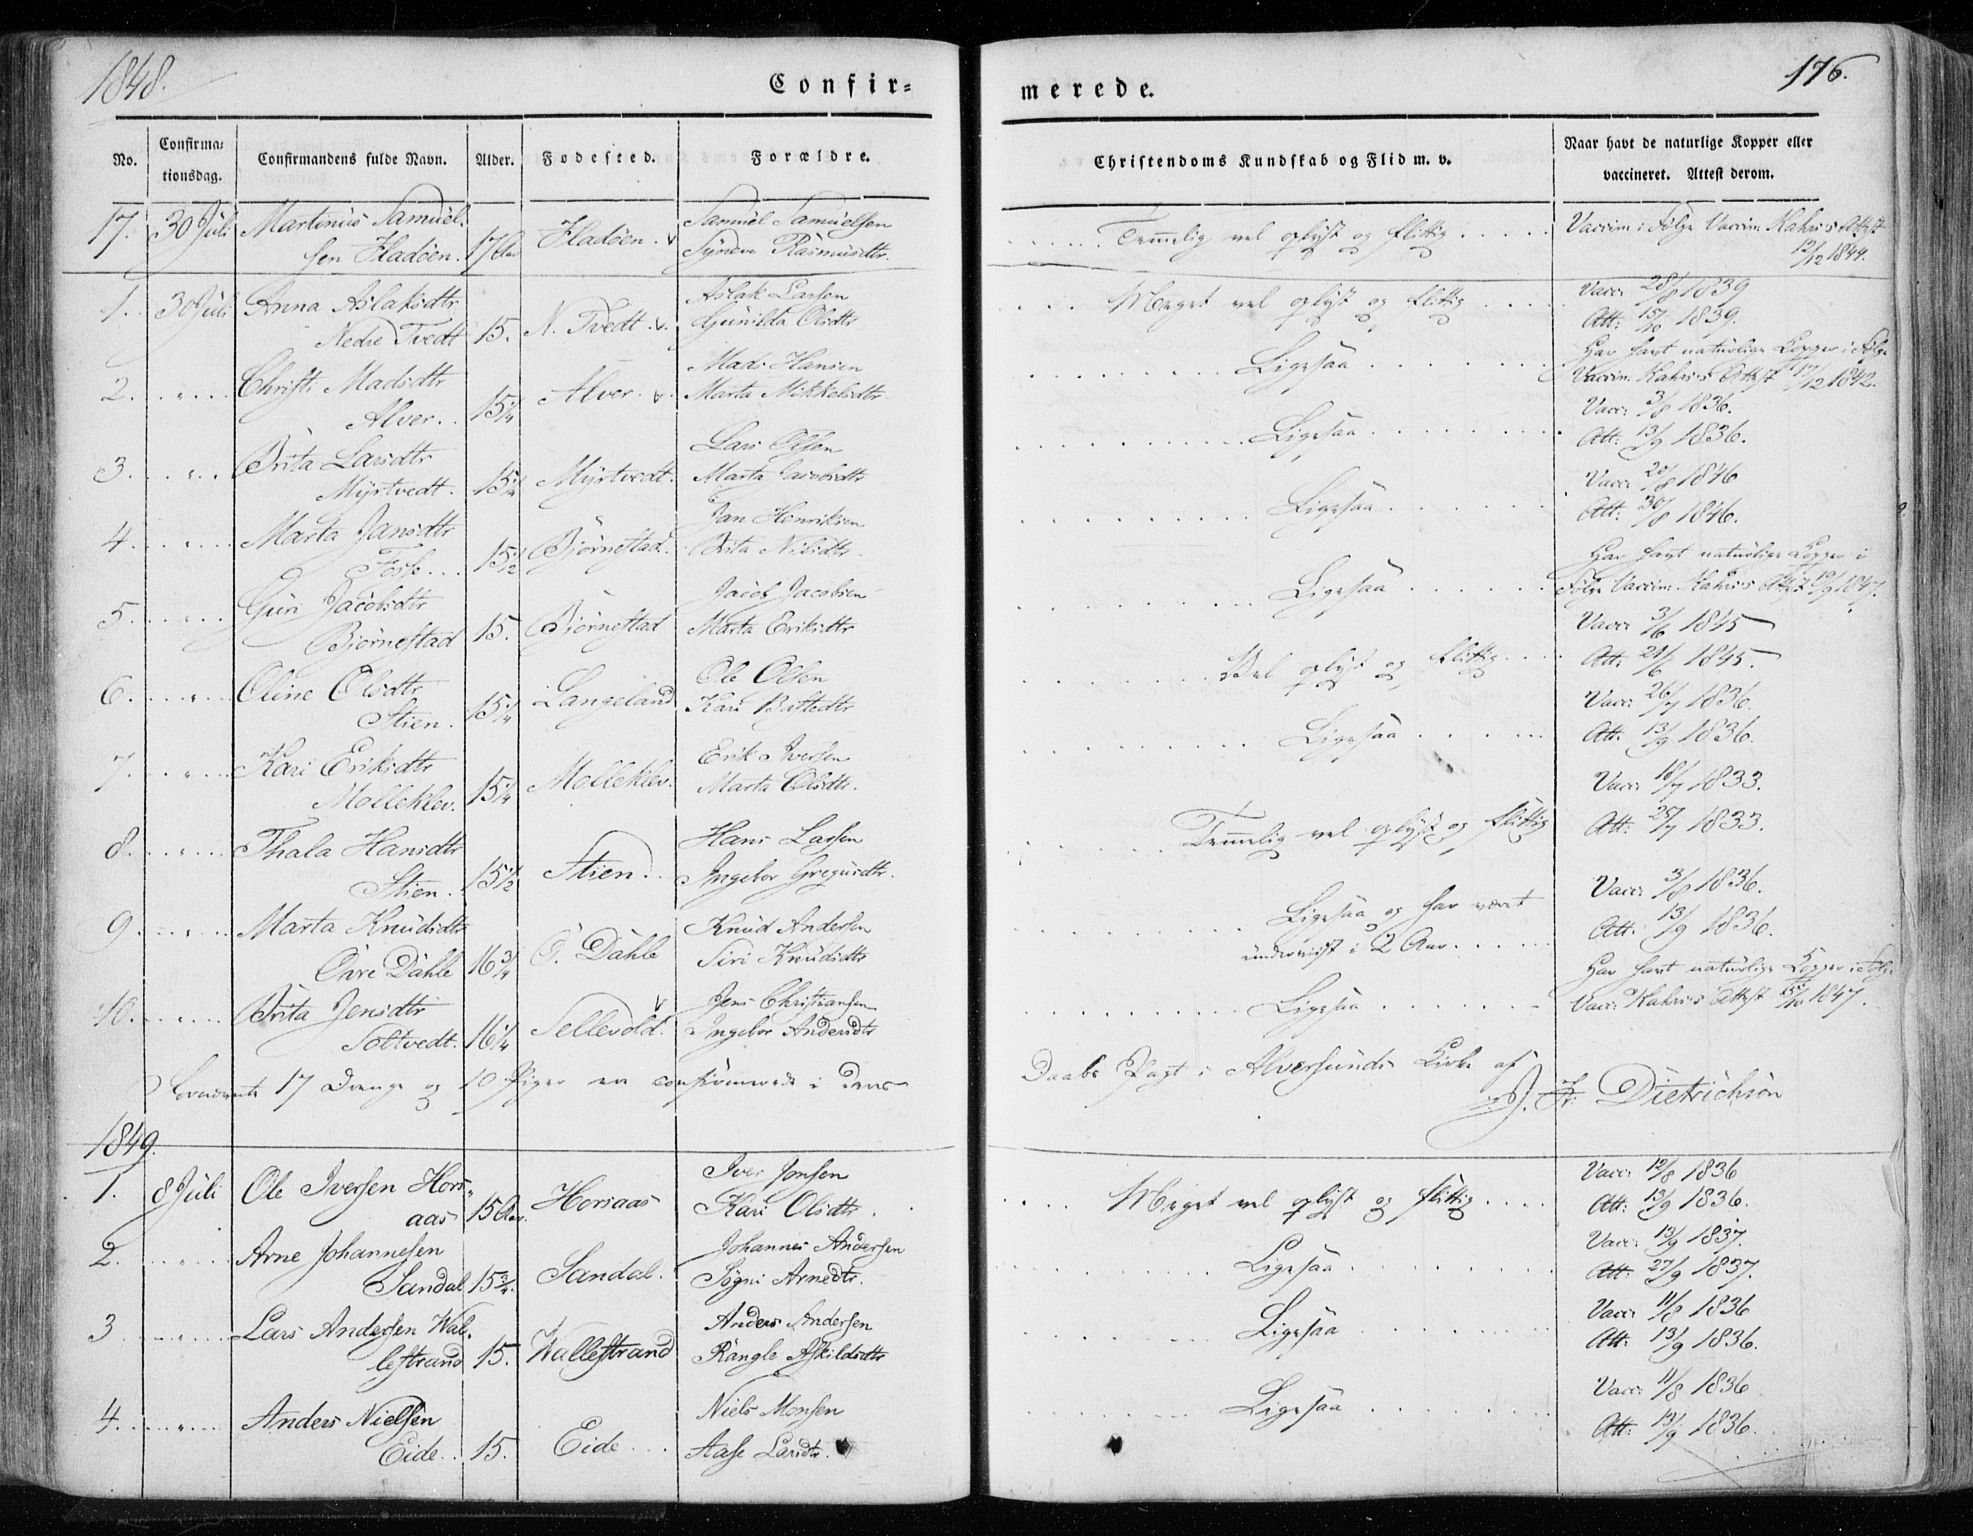 1848.
Confir=
merede.
176.
No.
Confirma=
tionsdag.
Confirmandens fulde Navn.
Alder.
Fødested.
Forældre.
Christendoms Kundskab og Flid m. v.
Naar havt de naturlige Kopper eller
vaccineret. Attest derom.
17. 30 Juli Martinus Samuel= Samuel Samuelsen
sen Fladøen. 17 Aar Fladøen. Synova Rasmusdtr.
Temmelig vel oplyst og flittig Vaccin: i Følge Vaccin. Kahrs's Attest
12/12 1844.
1. 30 Juli Anna Aslaksdtr Aslak Larsen
Nedre Tvedt 15. N. Tvedt. Gunilda Olsdtr
Meget vel oplyst og flittig Vacc: 28/8 1839
Att: 15/10 1839.
2. " Christi Madsdtr Mads Hansen
Alver. 15 1/4 Alver. Marta Mikkelsdtr
Ligesaa Har havt naturlige Kopper i Følge
Vaccin. Kahrs's Attest 17/12 1842.
3. " Brita Larsdtr Lars Olsen
Myrtvedt. 15 1/4 Myrtvedt. Marta Jacobsdtr
Ligesaa Vacc: 3/8 1836.
Att: 13/9 1836.
4. " Marta Jansdtr Jan Henriksen
Fosse 15 1/2 Bjørnestad. Brita Nilsdtr.
Ligesaa Vacc: 20/8 1846
Att: 30/8 1846.
5. " Guri Jacobsdtr Jacob Jacobsen
Bjørnestad 15. Bjørnestad Marta Eriksdtr
Ligesaa Har havt naturlige Kopper i
Følge Vaccin. Kahrs's Attest 19/9 1847.
6. " Oline Olsdtr Ole Olsen
Stien. 15 1/4 Langeland Kari
Vel oplyst og flittig Vacc: 3/6 1845
Att: 21/6 1845.
7. " Kari Eriksdtr Erik Iversen
Molleklev. 15 1/4 Molleklev. Marta Olsdtr.
Ligesaa Vacc: 26/7 1836.
Att: 13/9 1836.
8. " Thala Hansdtr Hans Larsen
Stien. 15 1/2 Stien. Ingebor Gregusdtr.
Temmelig vel oplyst og flittig Vacc: 18/7 1833.
Att: 25/7 1833.
9. " Marta Knudsdtr Knud Andersen
Øvre Dahle 16 3/4 Ø. Dahle Siri Knudsdtr
Ligesaa og har været
underviist i 2 Aar. Vacc: 3/8 1836.
Att: 13/9 1836.
10. " Brita Jensdtr Jens Christiansen
Toltvedt. 16 1/4 Sellevold. Ingebor Andersdtr
Ligesaa Har havt naturlige Kopper i Følge
Vacc: Kahrs's Attest 15/10 1847.
Forneævnte 17 Drenge og 10 Piger ere confirmerede i deres
Daabs Pagt i Alversunds Kirke af
J. Fr: Dietrichson
1849.
1. 8 Juli Ole Iversen Hors= Iver Jonsen
aas 15 Aar. Horsaas Kari Olsdtr.
Meget vel oplyst og flittig Vacc: 12/8 1836
Att: 13/9 1836.
2. " Arne Johannesen Johannes Andersen
Sandal 15 3/4. Sandal. Sygni Arnedtr.
Ligesaa Vacc: 13/9 1837.
Att: 27/9 1837.
3 " Lars Andersen Wal= Anders Andersen
lestrand 15. Wallestrand Rangle Askildsdtr
Ligesaa Vacc: 11/8 1836
Att: 13/9 1836.
4. " Anders Nielsen Niels Monsen
Eide. 15. Eide Aase Larsdtr.
Ligesaa Vacc: 11/8 1836
Att: 13/9 1836.